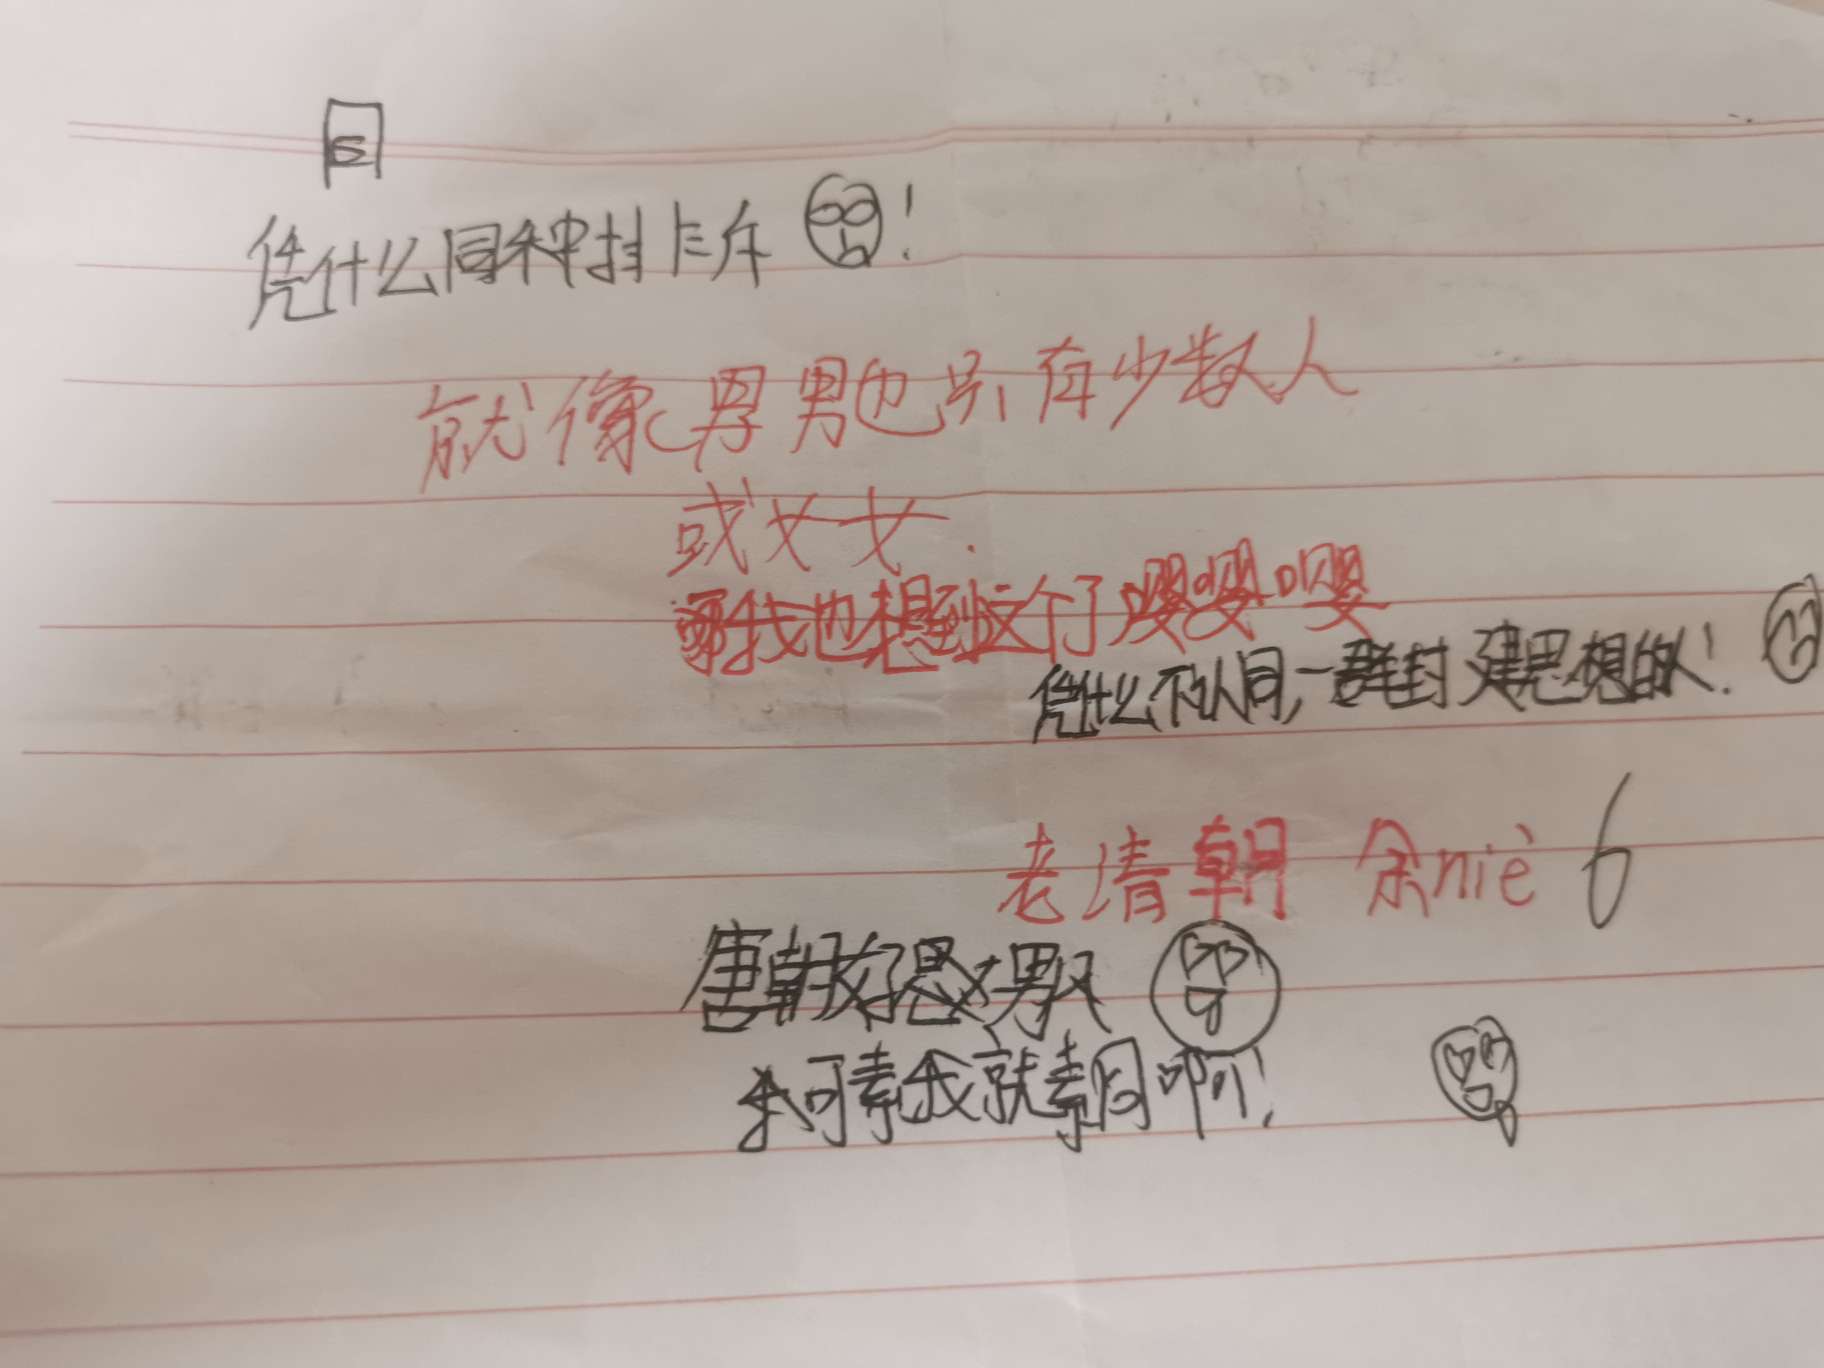 凭什么同种排斥!
就像男男也只有少数人
或女女.
我也想到这个了嘤嘤嘤
凭什么不认同,一群封建思想的人!
老清朝 余niè 6
唐朝好
我就 啊!